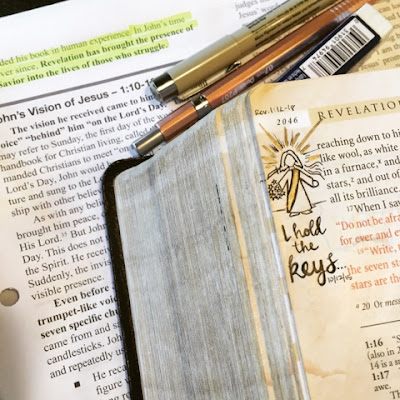 ded his book in human experience. In John's time
ver since, Revelation has brought the presence of
Savior into the lives of those who struggle.
ohn's Vision of Jesus – 1:10-1
The vision he received came to him
oice" "behind" him "on the Lord's Day.
may refer to Sunday, the first day of the wo
handbook for Christian living, called
manded Christians to meet "on
Lord's Day, John would
ture and sung to the L
ship with other belie
As with any beli
brought him peace,
His Lord." But John
Day. This does not
the Spirit. He received
Suddenly, the invis
visible presence.
Even before
trumpet-like voice
seven specific ch
came from and sa
candlesticks. John
and repeatedly us
He reca
figure
Rev. 1:12-18
2046
REVELATION
reaching down to hi
like wool, as white
in a furnace, and
stars, and out of
all its brilliance.
17 When I saw
"Do not be afra
for ever and e
19 "Write,
the seven st
stars are th
I hold
the
keys...
a 20 Or messe
1:16 "S
(also in 2
14 is a s
1:17